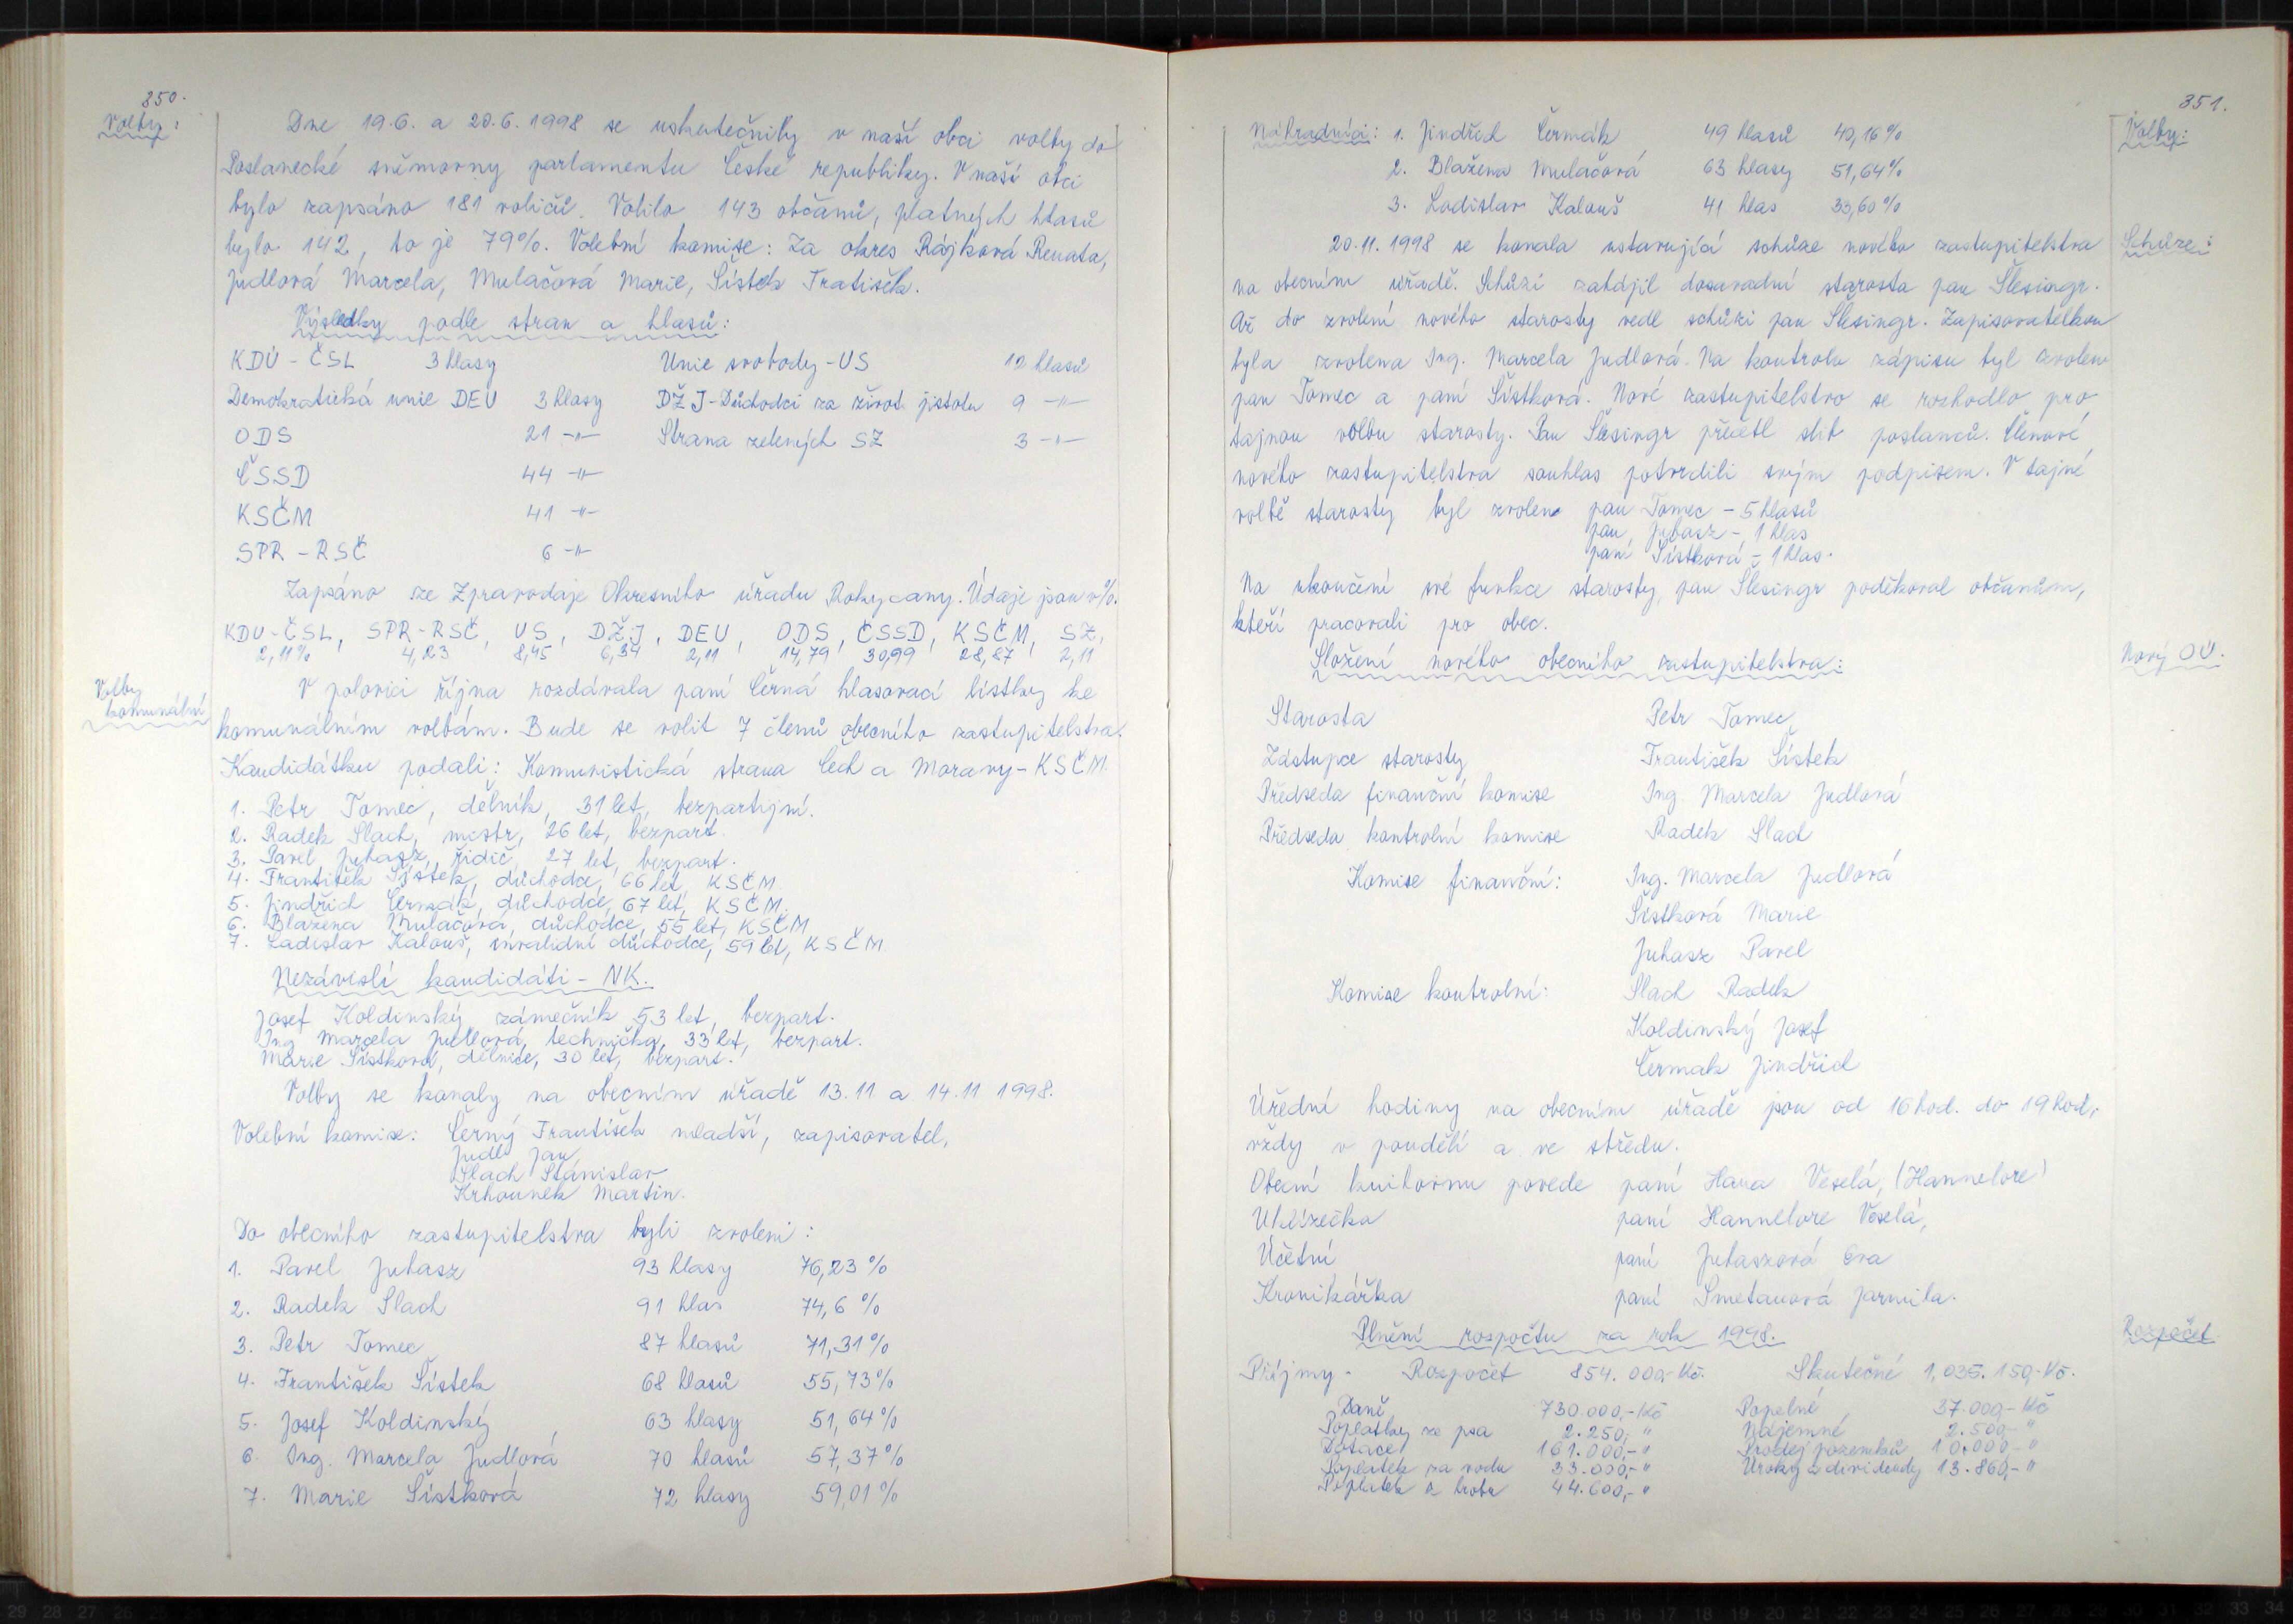 350.
Volby:
Dne 19.6. a 20.6. 1998 se uskutečnily v naší obci volby do
Poslanecké sněmovny parlamentu České republiky. V naší obci
bylo zapsáno 181 voličů. Volilo 143 občanů, platných hlasů
bylo 142, to je 79%. Volební komise: Za okres Rájková Renata,
Judlová Marcela, Mulačová Marie, Šístek Fratišek.
Výsledky podle stran a hlasů:
KDU - ČSL 3 hlasy Unie svobody - US 12 hlasů
Demokratická unie DEU 3 hlasy DŽJ - Důchodci za život. jistotu 9 -"-
ODS 21 -"- Strana zelených SZ 3 -"-
ČSSD 44 -"-
KSČM 41 -"-
SPR - RSČ 6 -"-
Zapsáno ze Zpravodaje Okresního úřadu Rokycany. Údaje jsou v %.
KDU-ČSL, SPR-RSČ, US, DŽJ, DEU, ODS, ČSSD, KSČM, SZ,
2,11% 4,23 8,45 6,34 2,11 14,79 30,99 28,87 2,11
Volby
komunální
V polovici října rozdávala paní Černá hlasovací lístky ke
komunálním volbám. Bude se volit 7 členů obecního zastupitelstva.
Kandidátku podali: Komunistická strana Čech a Moravy - KSČM.
1. Petr Tomec, dělník, 31 let, bezpartijní.
2. Radek Slach, mistr, 26 let, bezpart.
3. Pavel Juhasz, řidič, 27 let, bezpart.
4. František Šístek, důchodce, 66 let, KSČM.
5. Jindřich Čermák, důchodce, 67 let, KSČM.
6. Blažena Mulačová, důchodce, 55 let, KSČM
7. Ladislav Kalouš, invalidní důchodce, 59 let, KSČM
Nezávislí kandidáti - NK.
Josef Koldinský zámečník 53 let, bezpart.
Ing Marcela Judlová, technička, 33 let, bezpart.
Marie Šístková, dělnice, 30 let, bezpart.
Volby se konaly na obecním úřadě 13.11 a 14.11 1998.
Volební komise: Černý František mladší, zapisovatel,
Judl Jan
Slach Stanislav
Krhounek Martin.
Do obecního zastupitelstva byli zvoleni:
1. Pavel Juhasz 93 hlasy 76,23 %
2. Radek Slach 91 hlas 74,6 %
3. Petr Tomec 87 hlasů 71,31 %
4. František Šístek 68 hlasů 55,73 %
5. Josef Koldinský 63 hlasy 51,64 %
6. Ing. Marcela Judlová 70 hlasů 57,37 %
7. Marie Šístková 72 hlasy 59,01 %
351.
Volby:
Náhradníci: 1. Jindřich Čermák 49 hlasů 40,16 %
2. Blažena Mulačová 63 hlasy 51,64 %
3. Ladislav Kalouš 41 hlas 33,60 %
Schůze:
20.11. 1998 se konala ustavující schůze nového zastupitelstva
na obecním úřadě. Schůzi zahájil dosavadní starosta pan Šlesingr.
Až do zvolení nového starosty vedl schůzi pan Šlesingr. Zapisovatelkou
byla zvolena Ing. Marcela Judlová. Na kontrolu zápisu byl zvolen
pan Tomec a paní Šístková. Nové zastupitelstvo se rozhodlo pro
tajnou volbu starosty. Pan Šlesingr přečetl slib poslanců. Členové
nového zastupitelstva souhlas potvrdili svým podpisem. V tajné
volbě starosty byl zvolen pan Tomec - 5 hlasů
pan Juhasz - 1 hlas
paní Šístková - 1 hlas.
Na ukončení své funkce starosty, pan Šlesingr poděkoval občanům,
kteří pracovali pro obec.
Nový OÚ.
Složení nového obecního zastupitelstva:
Starosta Petr Tomec
Zástupce starosty František Šístek
Předseda finanční komise Ing. Marcela Judlová
Předseda kontrolní komise Radek Slach
Komise finanční: Ing. Marcela Judlová
Šístková Marie
Juhasz Pavel
Komise kontrolní: Slach Radek
Koldinský Josef
Čermak Jindřich
Úřední hodiny na obecním úřadě jsou od 16 hod. do 19 hod,
vždy v pondělí a ve středu.
Obecní knihovnu povede paní Hana Veselá, (Hannelore)
Uklízečka paní Hannelore Veselá,
Účetní paní Juhaszová Eva
Kronikářka paní Smetanová Jarmila.
Rozpočet
Plnění rozpočtu za rok 1998.
Příjmy - Rozpočet 854.000,- Kč. Skutečné 1,035.150,- Kč.
Daně 730.000,- Kč Popelné 37.000,- Kč
Poplatky ze psa 2.250,- " Nájemné 2.500,- "
Dotace 161.000,- " Prodej pozemků 10.000,- "
Poplatek za vodu 33.000,- " Úroky a dividendy 13.860,- "
Poplatek z hrobu 44.600,- "